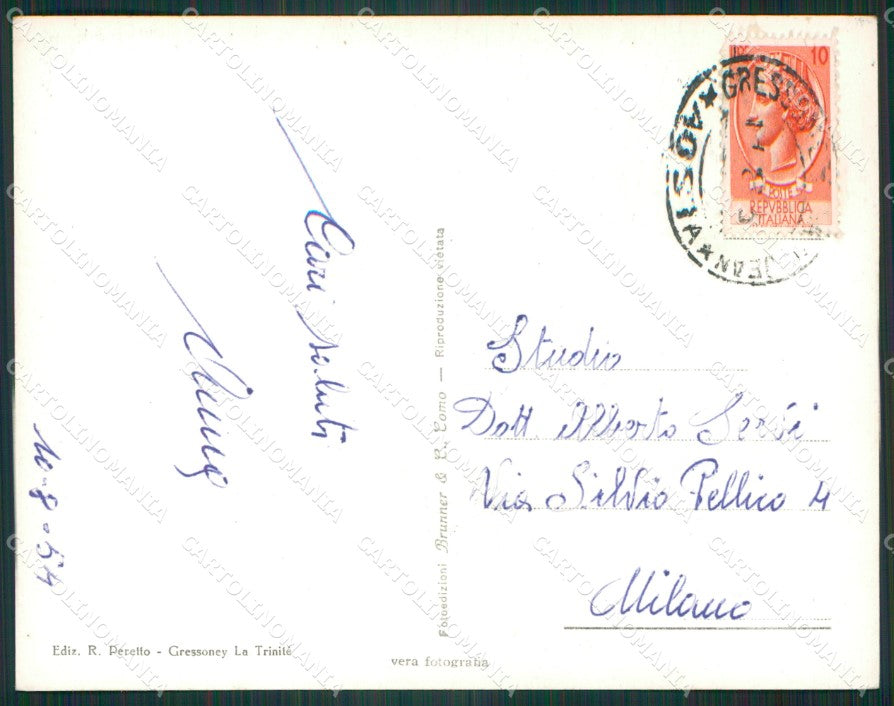 10
POSTE
REPVBBLICA
ITALIANA
AOSTA
Cari saluti
10-8-54
Studio
Dott. Alberto
Via Silvio Pellico 4
Milano
Fotoedizioni Brunner & C., Como — Riproduzione vietata
Ediz. R. Peretto - Gressoney La Trinité
vera fotografia
CARTOLINOMANIA